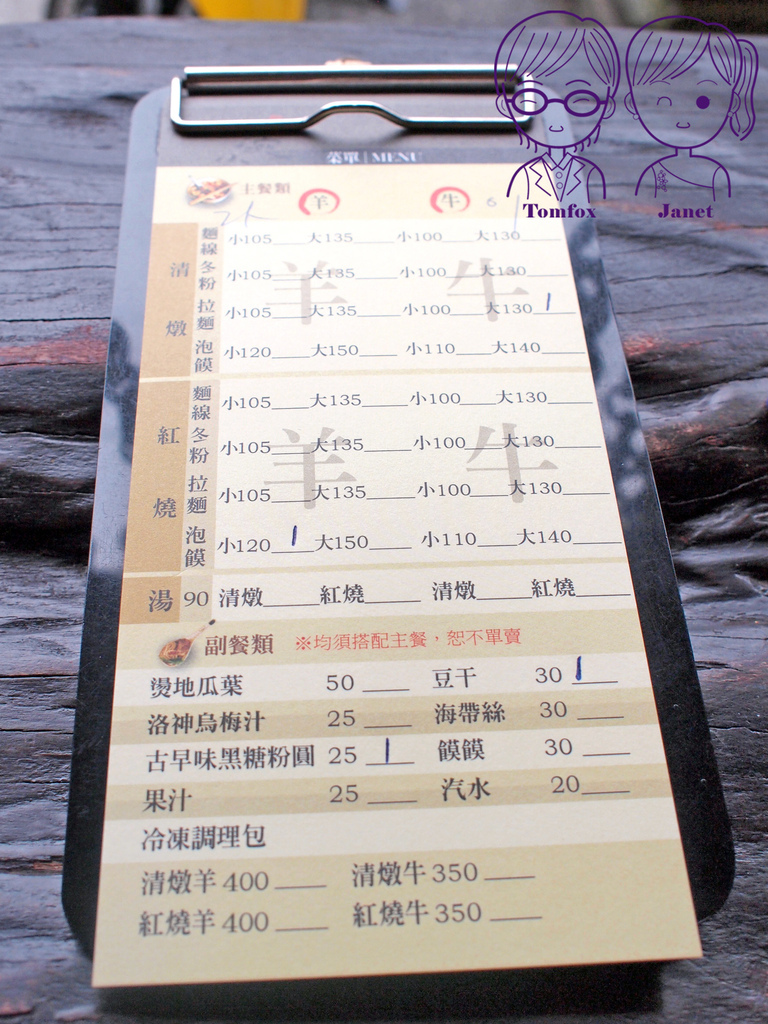 Tomfox Janet
菜單 | MENU
主餐類 羊 牛 6
清燉 羊 牛
麵線 小105____大135____ 小100____大130____
冬粉 小105____大135____ 小100____大130____
拉麵 小105____大135____ 小100____大130____
泡饃 小120____大150____ 小110____大140____
紅燒 羊 牛
麵線 小105____大135____ 小100____大130____
冬粉 小105____大135____ 小100____大130____
拉麵 小105____大135____ 小100____大130____
泡饃 小120____大150____ 小110____大140____
湯 90 清燉____紅燒____ 清燉____紅燒____
副餐類 ※均須搭配主餐，恕不單賣
燙地瓜葉 50 ____ 豆干 30 ____
洛神烏梅汁 25 ____ 海帶絲 30 ____
古早味黑糖粉圓 25 ____ 饃饃 30 ____
果汁 25 ____ 汽水 20____
冷凍調理包
清燉羊 400 ____ 清燉牛 350 ____
紅燒羊 400 ____ 紅燒牛 350 ____